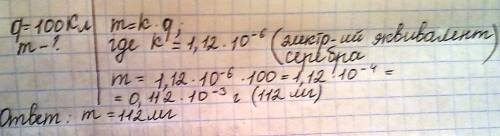 q=100Кл | m=k·q;
m-? | где k=1,12·10⁻⁶ (электр-ий эквивалент
серебра
m=1,12·10⁻⁶·100=1,12·10⁻⁴=
=0,112·10⁻³г (112 мг)
Ответ: m=112мг